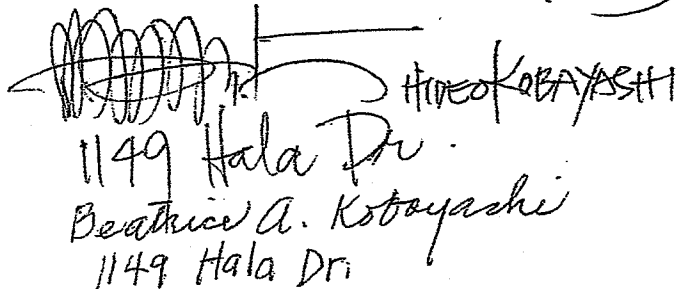 HIDEO KOBAYASHI
1149 Hala Dr.
Beatrice A. Kobayashi
1149 Hala Dr.